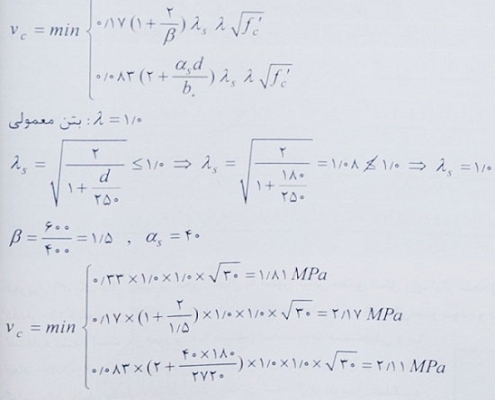 v_c = min { ۰/۱۷ (۱ + ۲/β) λ_s λ √f'_c
۰/۰۸۳ (۲ + α_s d/b.) λ_s λ √f'_c
بتن معمولی : λ = ۱/۰
λ_s = √(۲/(۱ + d/۲۵۰)) ≤ ۱/۰ ⇒ λ_s = √(۲/(۱ + ۱۸۰/۲۵۰)) = ۱/۰۸ ≰ ۱/۰ ⇒ λ_s = ۱/۰
β = ۶۰۰/۴۰۰ = ۱/۵ , α_s = ۴۰
v_c = min { ۰/۳۳ × ۱/۰ × ۱/۰ × √۳۰ = ۱/۸۱ MPa
۰/۱۷ × (۱ + ۲/۱/۵) × ۱/۰ × ۱/۰ × √۳۰ = ۲/۱۷ MPa
۰/۰۸۳ × (۲ + ۴۰×۱۸۰/۲۷۲۰) × ۱/۰ × ۱/۰ × √۳۰ = ۲/۱۱ MPa